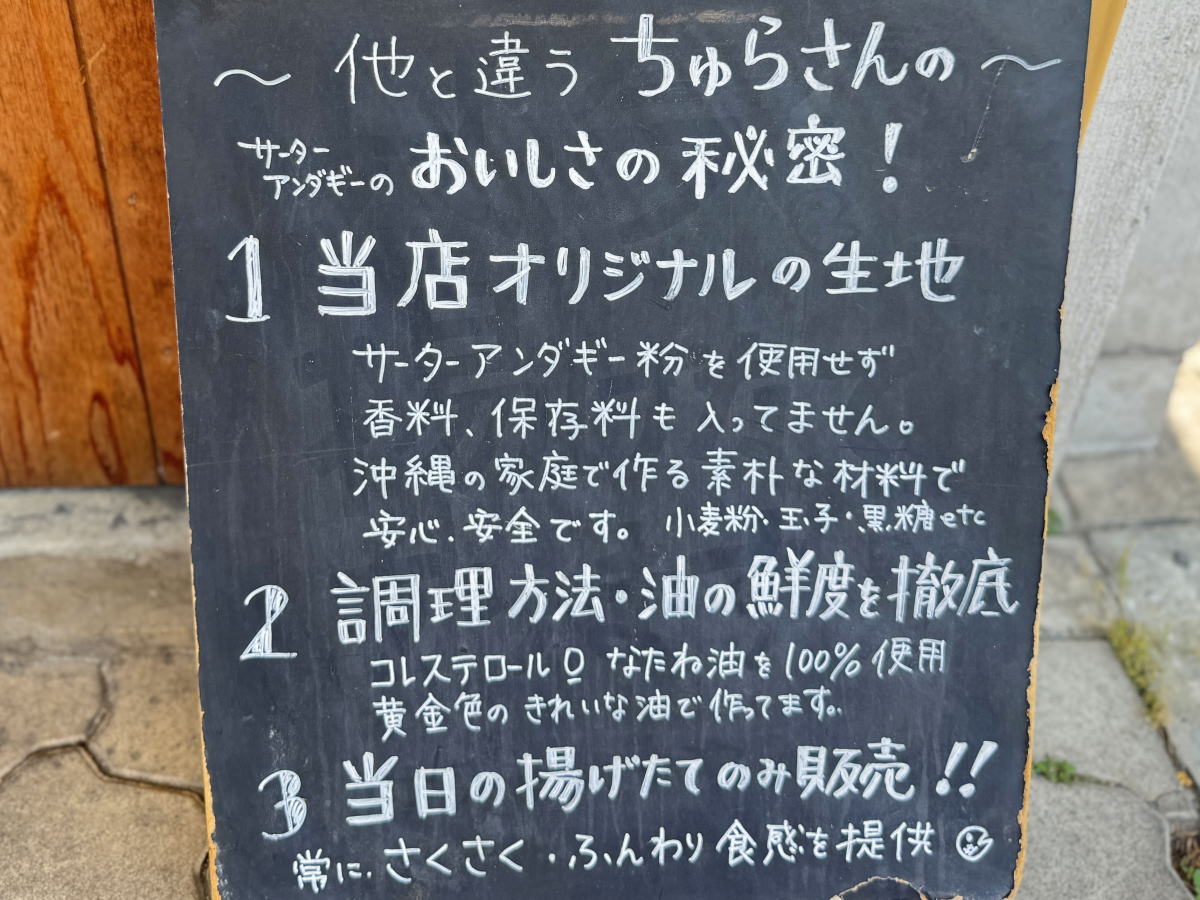 ～ 他と違う ちゅらさんの ～
サーターアンダギーの おいしさの秘密！
1 当店オリジナルの生地
サーターアンダギー粉を使用せず
香料、保存料も入ってません。
沖縄の家庭で作る素朴な材料で
安心.安全です。 小麦粉・玉子・黒糖etc
2 調理方法・油の鮮度を徹底
コレステロール0 なたね油を100%使用
黄金色のきれいな油で作ってます。
3 当日の揚げたてのみ販売!!
常に.さくさく・ふんわり食感を提供